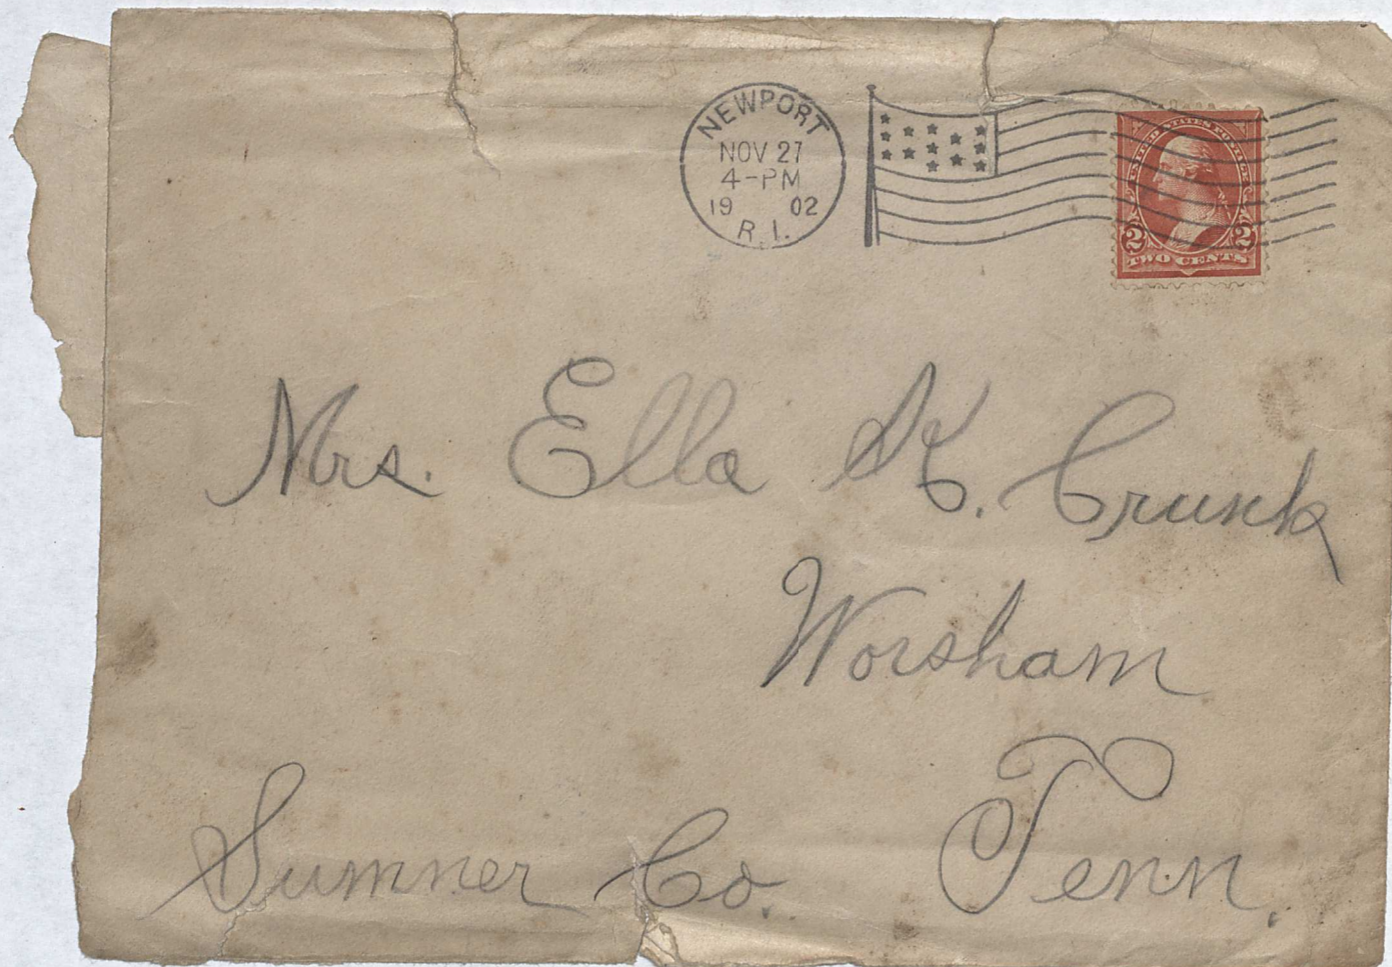 NEWPORT
NOV 27
4-PM
19 02
R.I.
UNITED STATES POSTAGE
2 2
TWO CENTS
Mrs. Ella K. Crunk
Worsham
Sumner Co. Tenn.